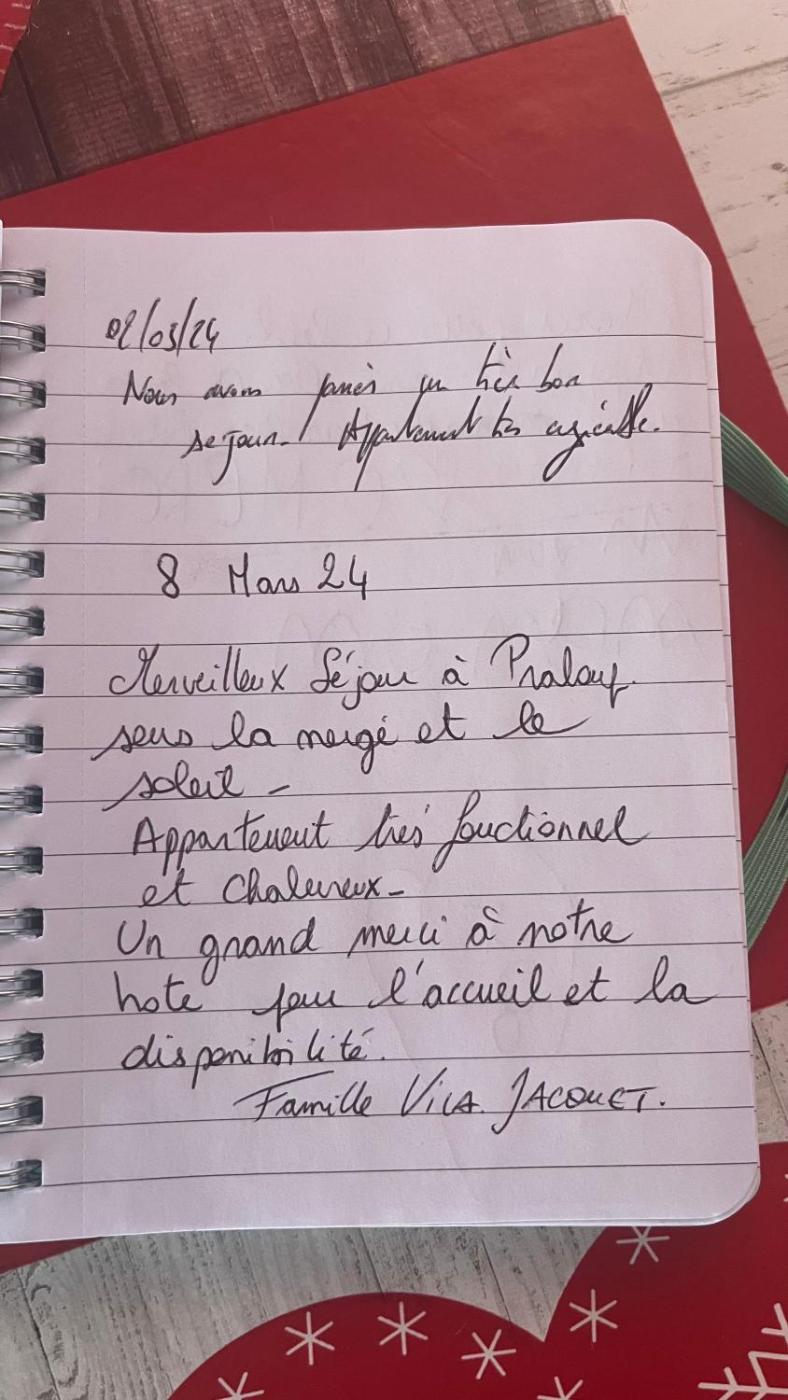 02/03/24
Nous avons passés un très bon
sejour. Appartement très agréable.
8 Mars 24
Merveilleux Séjour à Praloup
sous la neige et le
soleil -
Appartement très fonctionnel
et chaleureux -
Un grand merci à notre
hote pour l'accueil et la
disponibilité.
Famille VILA. JACQUET.